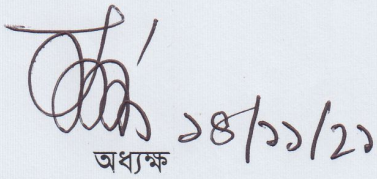 ১৪/১১/২১
অধ্যক্ষ